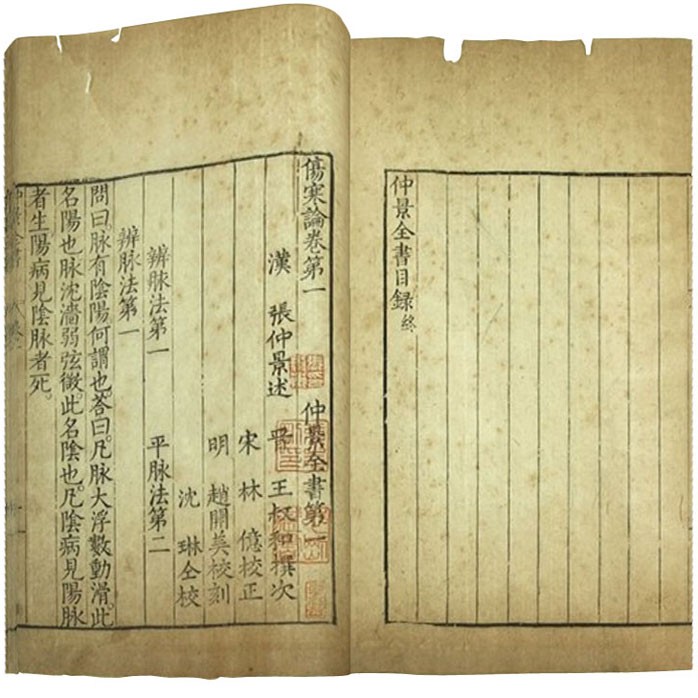 仲景全書目録終
傷寒論卷第一 仲景全書第一
漢 張仲景述 晉 王叔和撰次
宋 林 億校正
明 趙開美校刻
沈 琳仝校
辨脉法第一 平脉法第二
辨脉法第一
問曰。脉有陰陽何謂也。答曰。凡脉大浮數動滑。此
名陽也。脉沈濇弱弦微。此名陰也。凡陰病見陽脉
者生。陽病見陰脉者死。